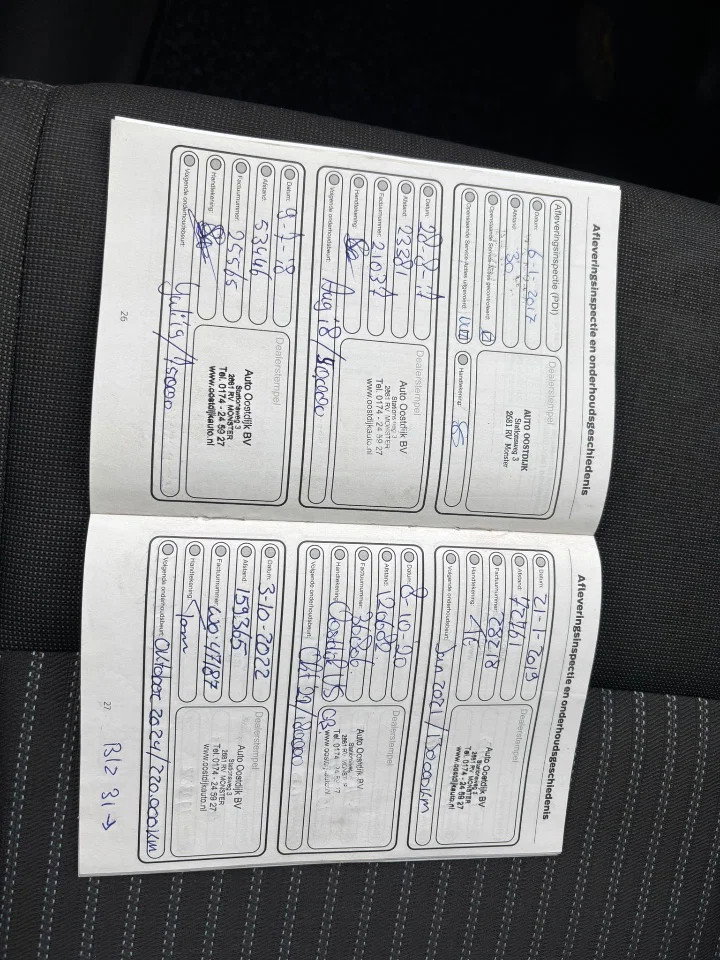 Afleveringsinspectie en onderhoudsgeschiedenis
Afleveringsinspectie (PDI)
Datum: 6-1-2017
Afstand: 30
Openstaande Service Acties gecontroleerd:
Openstaande Service Acties uitgevoerd:
Dealerstempel
AUTO OOSTDIJK
Stationsweg 3
2681 RV Monster
Handtekening:
Datum:
Afstand: 23381
Factuurnummer: 21037
Handtekening:
Volgende onderhoudsbeurt: Aug 18/
Dealerstempel
Auto Oostdijk BV
Stationsweg 3
2681 RV MONSTER
Tel. 0174 - 24 59 27
www.oostdijkauto.nl
Datum: 9-7-18
Afstand: 53446
Factuurnummer: 25565
Handtekening:
Volgende onderhoudsbeurt:
Dealerstempel
Auto Oostdijk BV
Stationsweg 3
2681 RV MONSTER
Tel. 0174 - 24 59 27
www.oostdijkauto.nl
26
Afleveringsinspectie en onderhoudsgeschiedenis
Datum: 21-1-2019
Afstand: 72761
Factuurnummer: 28218
Handtekening:
Volgende onderhoudsbeurt: Jan 2021/130.000km
Dealerstempel
Auto Oostdijk BV
Stationsweg 3
2681 RV MONSTER
Tel. 0174 - 24 59 27
www.oostdijkauto.nl
Datum: 8-10-20
Afstand: 120682
Factuurnummer:
Handtekening:
Volgende onderhoudsbeurt: Okt 22/180000
Dealerstempel
Auto Oostdijk BV
Stationsweg 3
2681 RV MONSTER
Tel. 0174 - 24 59 27
www.oostdijkauto.nl
Datum: 3-10-2022
Afstand: 159365
Factuurnummer: WO-47187
Handtekening: Tom
Volgende onderhoudsbeurt: Oktober 2024/220.000km
Dealerstempel
Auto Oostdijk BV
Stationsweg 3
2681 RV MONSTER
Tel. 0174 - 24 59 27
www.oostdijkauto.nl
27
Blz 31 →